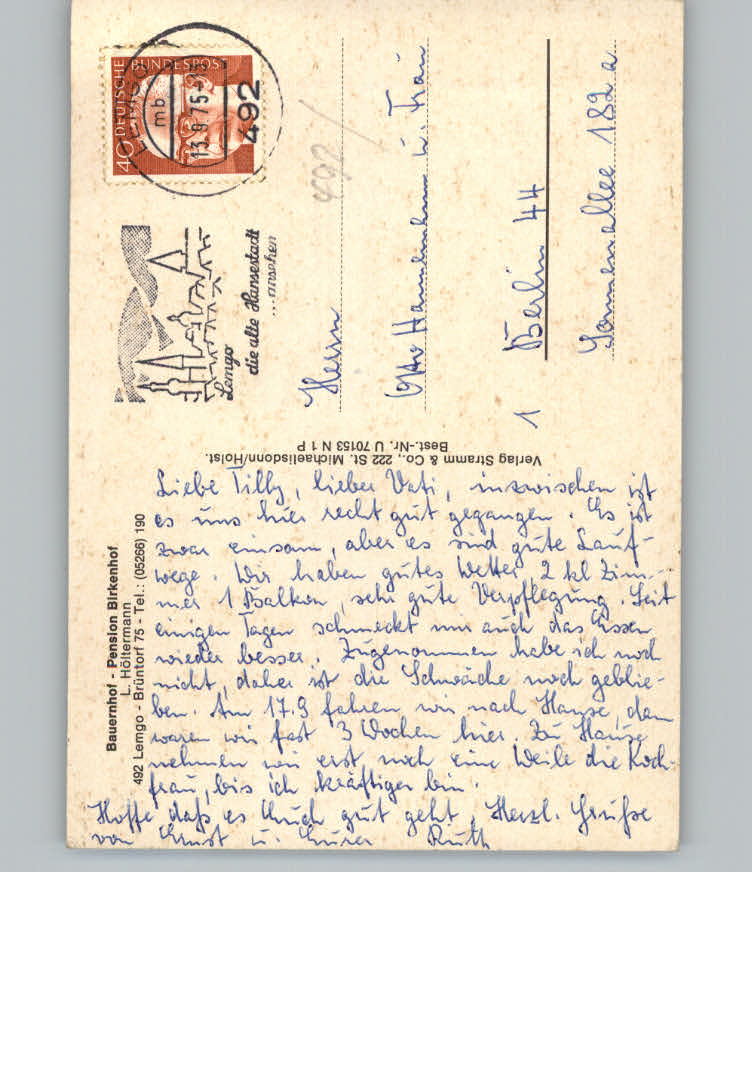 Bauernhof - Pension Birkenhof
L. Höltermann
492 Lemgo - Brüntorf 75 - Tel.: (05266) 190
Liebe Tilly, lieber Vati, inzwischen ist
es uns hier recht gut gegangen. Es ist
zwar einsam, aber es sind gute Lauf-
wege. Wir haben gutes Wetter 2 kl Zim-
mer 1 Balkon, sehr gute Verpflegung. Seit
einigen Tagen schmeckt mir auch das Essen
wieder besser. Zugenommen habe ich noch
nicht, daher ist die Schwäche noch geblie-
ben. Am 17.9 fahren wir nach Hause, dann
waren wir fast 3 Wochen hier. Zu Hause
nehmen wir erst noch eine Weile die Koch-
frau, bis ich kräftiger bin.
Hoffe daß es Euch gut geht, Herzl. Grüße
von Ernst u. Eurer Ruth
Verlag Stramm & Co., 222 St. Michaelisdonn/Holst.
Best.-Nr. U 70153 N 1 P
DEUTSCHE BUNDESPOST
40
LEMGO
mb
13.9.75
492
Lemgo
die alte Hansestadt
...ansehen
492
Herrn
Otto u. Frau
1 Berlin 44
Sonnenallee 182 a